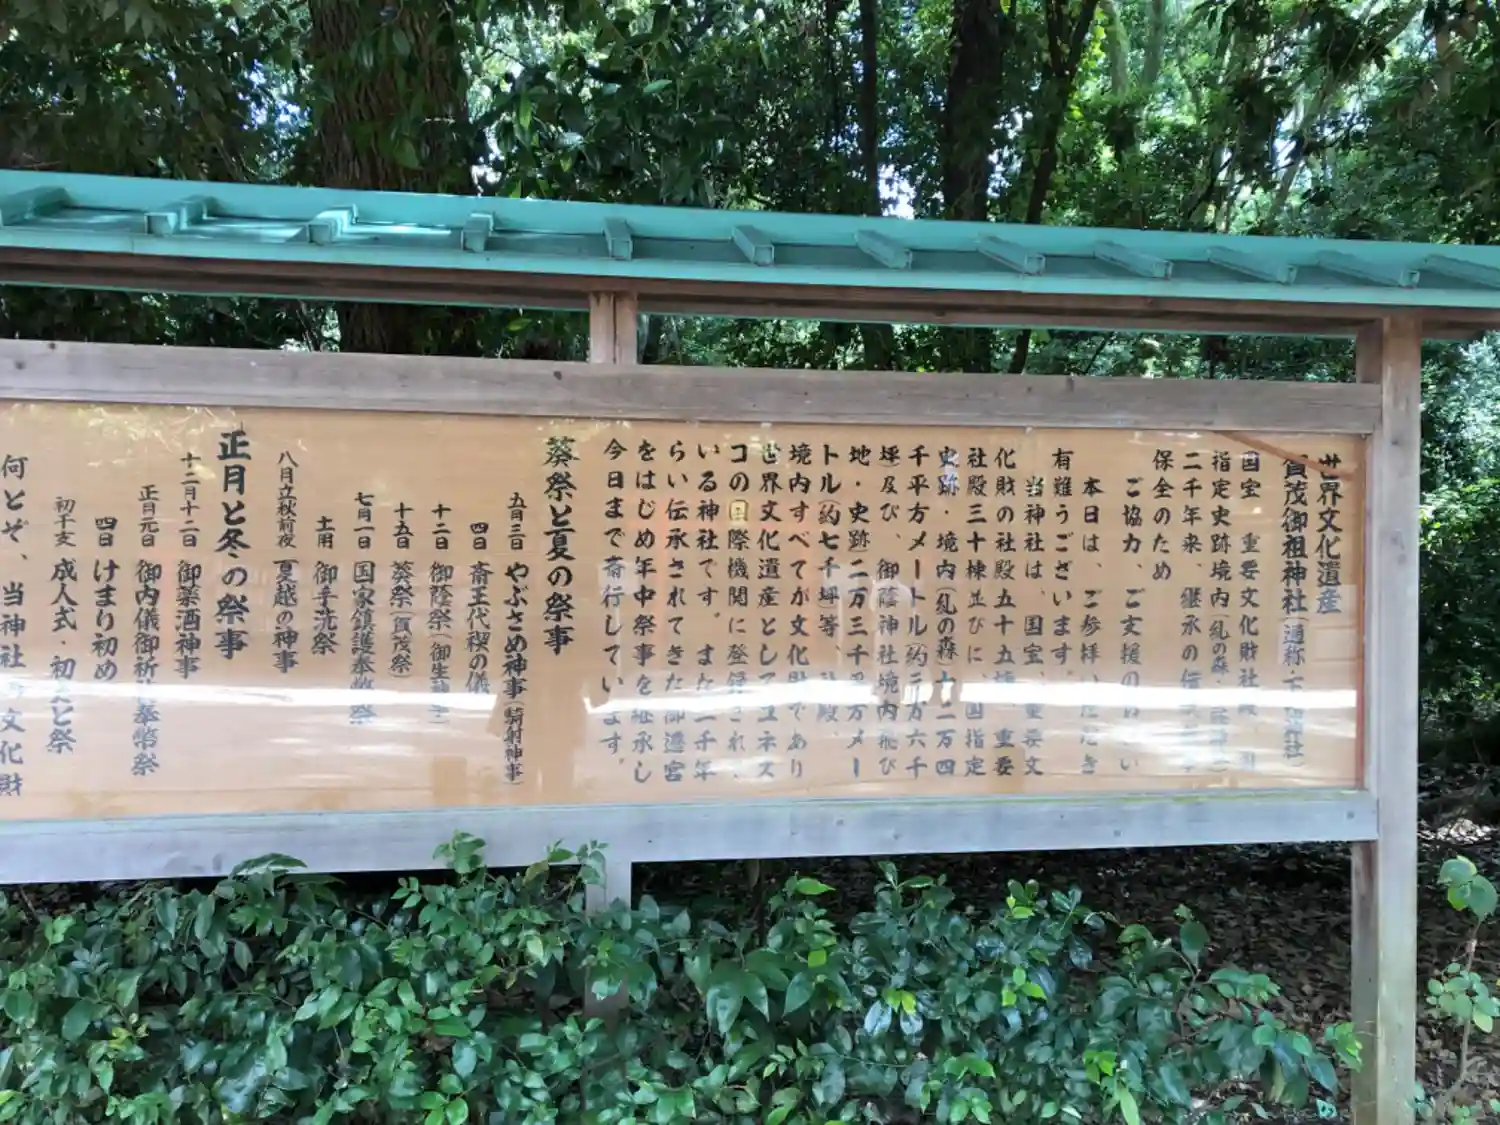 世界文化遺産
賀茂御祖神社(通称・下鴨神社)
国宝 重要文化財社殿
指定史跡境内(糺の森
二千年来、継承の伝
保全のため
ご協力、ご支援の
本日は、ご参拝いただき
有難うございます。
当神社は、国宝、重要文
化財の社殿五十五棟、重要
社殿三十棟並びに、国指定
史跡・境内(糺の森)十二万四
千平方メートル(約三万六千
坪)及び、御蔭神社境内(飛び
地・史跡)二万三千 方メー
トル(約七千坪)等、社殿、
境内すべてが文化財であり
世界文化遺産としてユネス
コの国際機関に登録されて
いる神社です。また二千年
らい伝承されてきた御遷宮
をはじめ年中祭事を継承し
今日まで斎行しています。
葵祭と夏の祭事
五月三日 やぶさめ神事(騎射神事)
四日 斎王代禊の儀
十二日 御蔭祭(御生神事)
十五日 葵祭(賀茂祭)
七月一日 国家鎮護奉幣祭
土用 御手洗祭
八月立秋前夜 夏越の神事
正月と冬の祭事
十二月十二日 御薬酒神事
正月元日 御内儀御祈 奉幣祭
四日 けまり初め
初干支 成人式・初えと祭
何とぞ、当神社 文化財